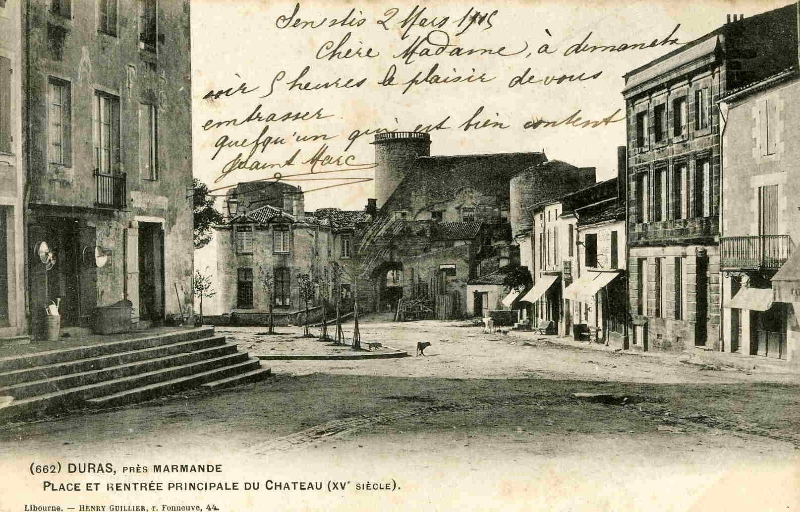 2 Mars 1905
Chère Madame, à
soir 5 heures le plaisir de vous
embrasser
quelqu'un qui est bien content
(662) DURAS, PRÈS MARMANDE
PLACE ET RENTRÉE PRINCIPALE DU CHATEAU (XVe SIÈCLE).
Libourne. — HENRY GUILLIER, r. Fonneuve, 44.